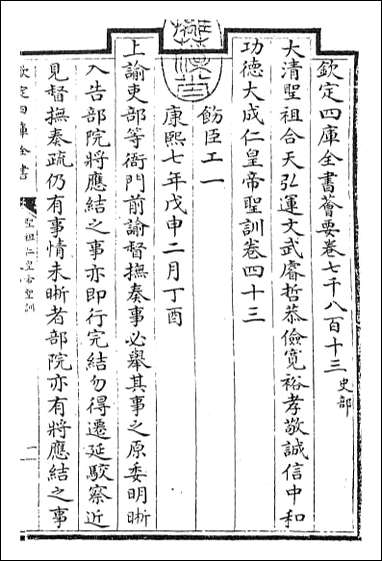 欽定四庫全書薈要卷七千八百十三 史部
大清聖祖合天弘運文武睿哲恭儉寬裕孝敬誠信中和
功德大成仁皇帝聖訓卷四十三
飭臣工一
康熙七年戊申二月丁酉
上諭吏部等衙門前諭督撫奏事必舉其事之原委明晰
入告部院將應結之事亦即行完結勿得遷延駁察近
見督撫奏疏仍有事情未晰者部院亦有將應結之事
欽定四庫全書
聖祖仁皇帝聖訓
一